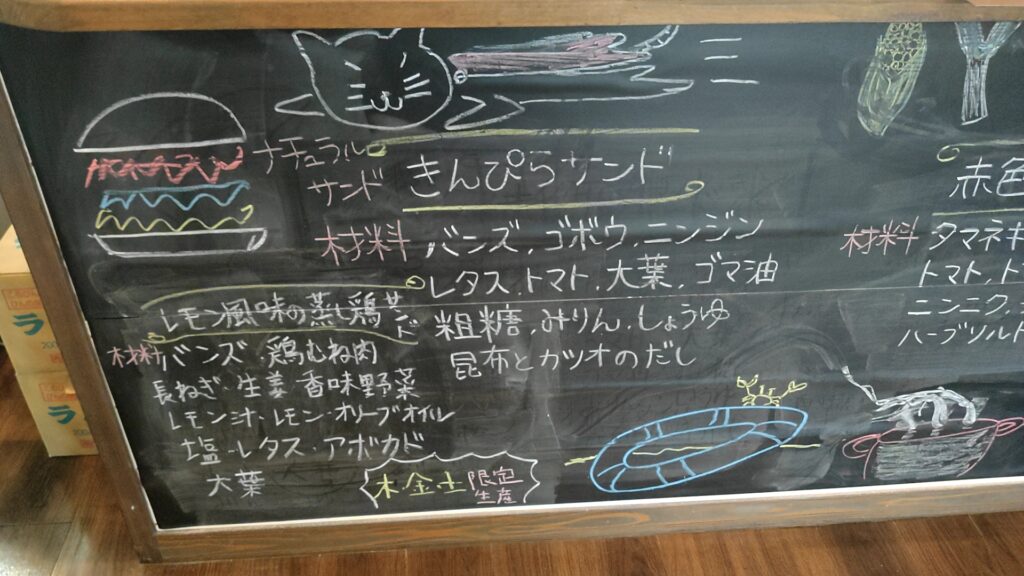 ナチュラル
サンド
きんぴらサンド
材料 バンズ,ゴボウ,ニンジン
レタス,トマト,大葉,ゴマ油
粗糖,みりん,しょうゆ
昆布とカツオのだし
レモン風味の蒸し鶏サンド
材料 バンズ・鶏むね肉
長ねぎ・生姜・香味野菜
レモン汁・レモン・オリーブオイル
塩・レタス・アボカド
大葉
木金土 限定
生産
赤色
材料 タマネギ
トマト,ト
ニンニク,
ハーブソルト
ラ
ラ